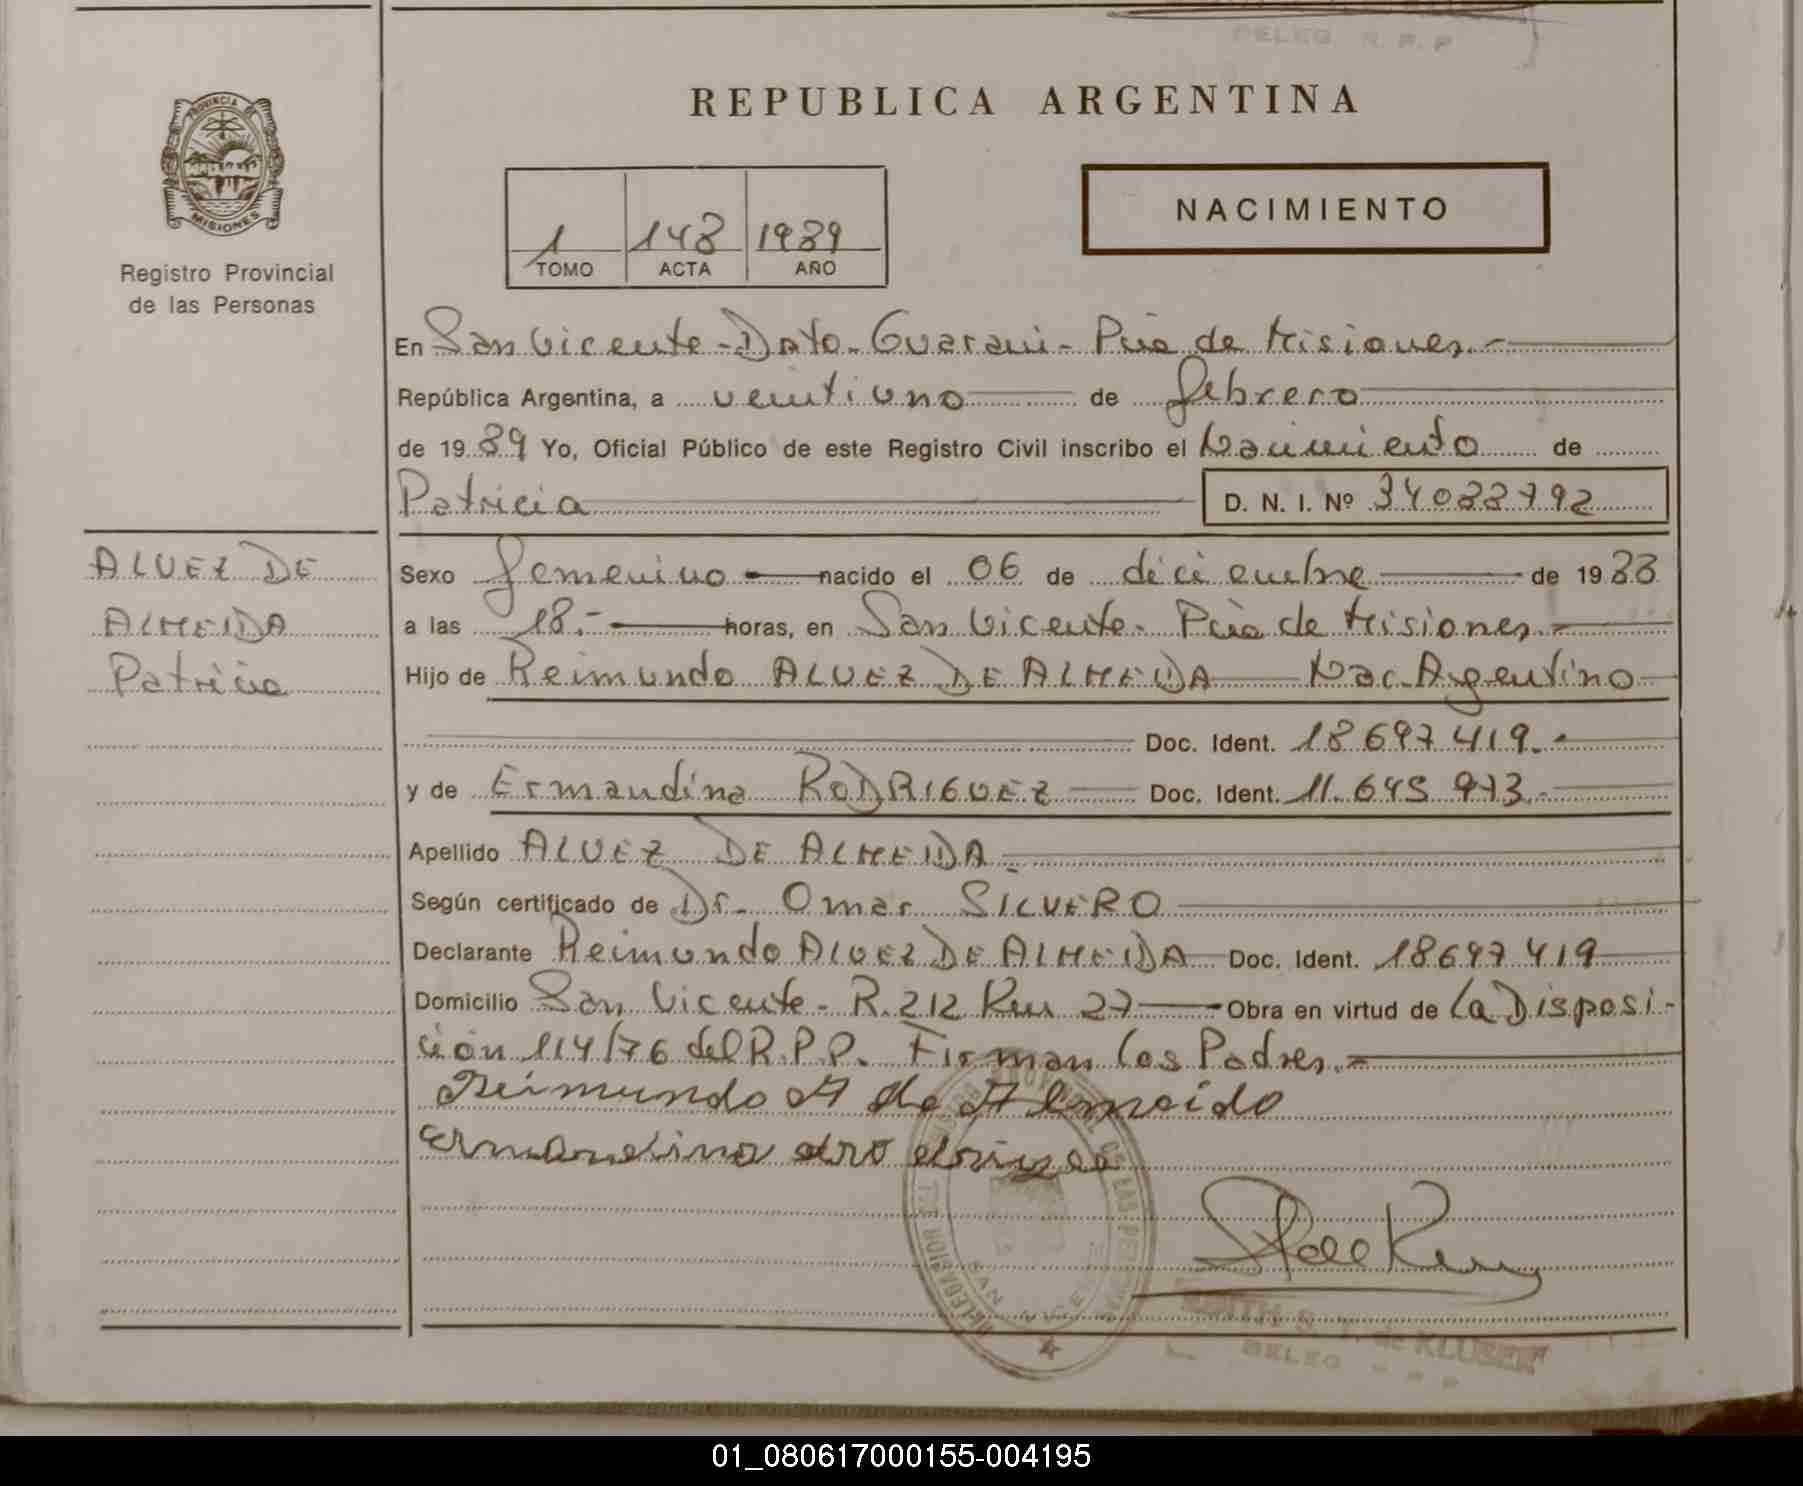 DELEG. R. P. P
REPUBLICA ARGENTINA
PROVINCIA DE
MISIONES
Registro Provincial
de las Personas
1 148 1989
TOMO ACTA AÑO
NACIMIENTO
En San Vicente - Dpto. Guarani - Pcia de Misiones.-
República Argentina, a veintiuno de febrero
de 1989 Yo, Oficial Público de este Registro Civil inscribo el Nacimiento de
Patricia D. N. I. Nº 34088792
ALVEZ DE
ALMEIDA
Patricia
Sexo femenino nacido el 06 de diciembre de 1988
a las 18.- horas, en San Vicente - Pcia de Misiones.-
Hijo de Reimundo ALVEZ DE ALMEIDA Nac. Argentino
Doc. Ident. 18697419.-
y de Ermandina RODRIGUEZ Doc. Ident. 11.645 973.-
Apellido ALVEZ DE ALMEIDA.
Según certificado de Dr. Omar SILVERO
Declarante Reimundo ALVEZ DE ALMEIDA Doc. Ident. 18697419
Domicilio San Vicente - R. 212 Km 27 Obra en virtud de La Disposi-
ción 114/76 del R.P.P. Firman los Padres.-
Reimundo A de Almeido
Ermandina
SAN VICENTE
DE LAS
de KLUSER
DELEG
01_080617000155-004195